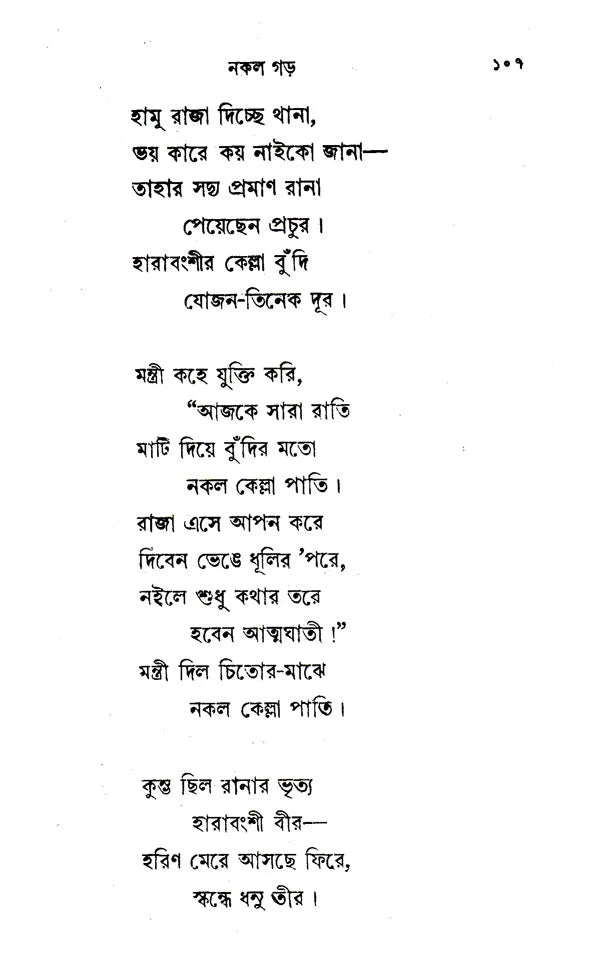 নকল গড়
১০৭
হামু রাজা দিচ্ছে থানা,
ভয় কারে কয় নাইকো জানা—
তাহার সদ্য প্রমাণ রানা
পেয়েছেন প্রচুর।
হারাবংশীর কেল্লা বুঁদি
যোজন-তিনেক দূর।

মন্ত্রী কহে যুক্তি করি,
“আজকে সারা রাতি
মাটি দিয়ে বুঁদির মতো
নকল কেল্লা পাতি।
রাজা এসে আপন করে
দিবেন ভেঙে ধূলির ’পরে,
নইলে শুধু কথার তরে
হবেন আত্মঘাতী!”
মন্ত্রী দিল চিতোর-মাঝে
নকল কেল্লা পাতি।

কুম্ভ ছিল রানার ভৃত্য
হারাবংশী বীর—
হরিণ মেরে আসছে ফিরে,
স্কন্ধে ধনু তীর।